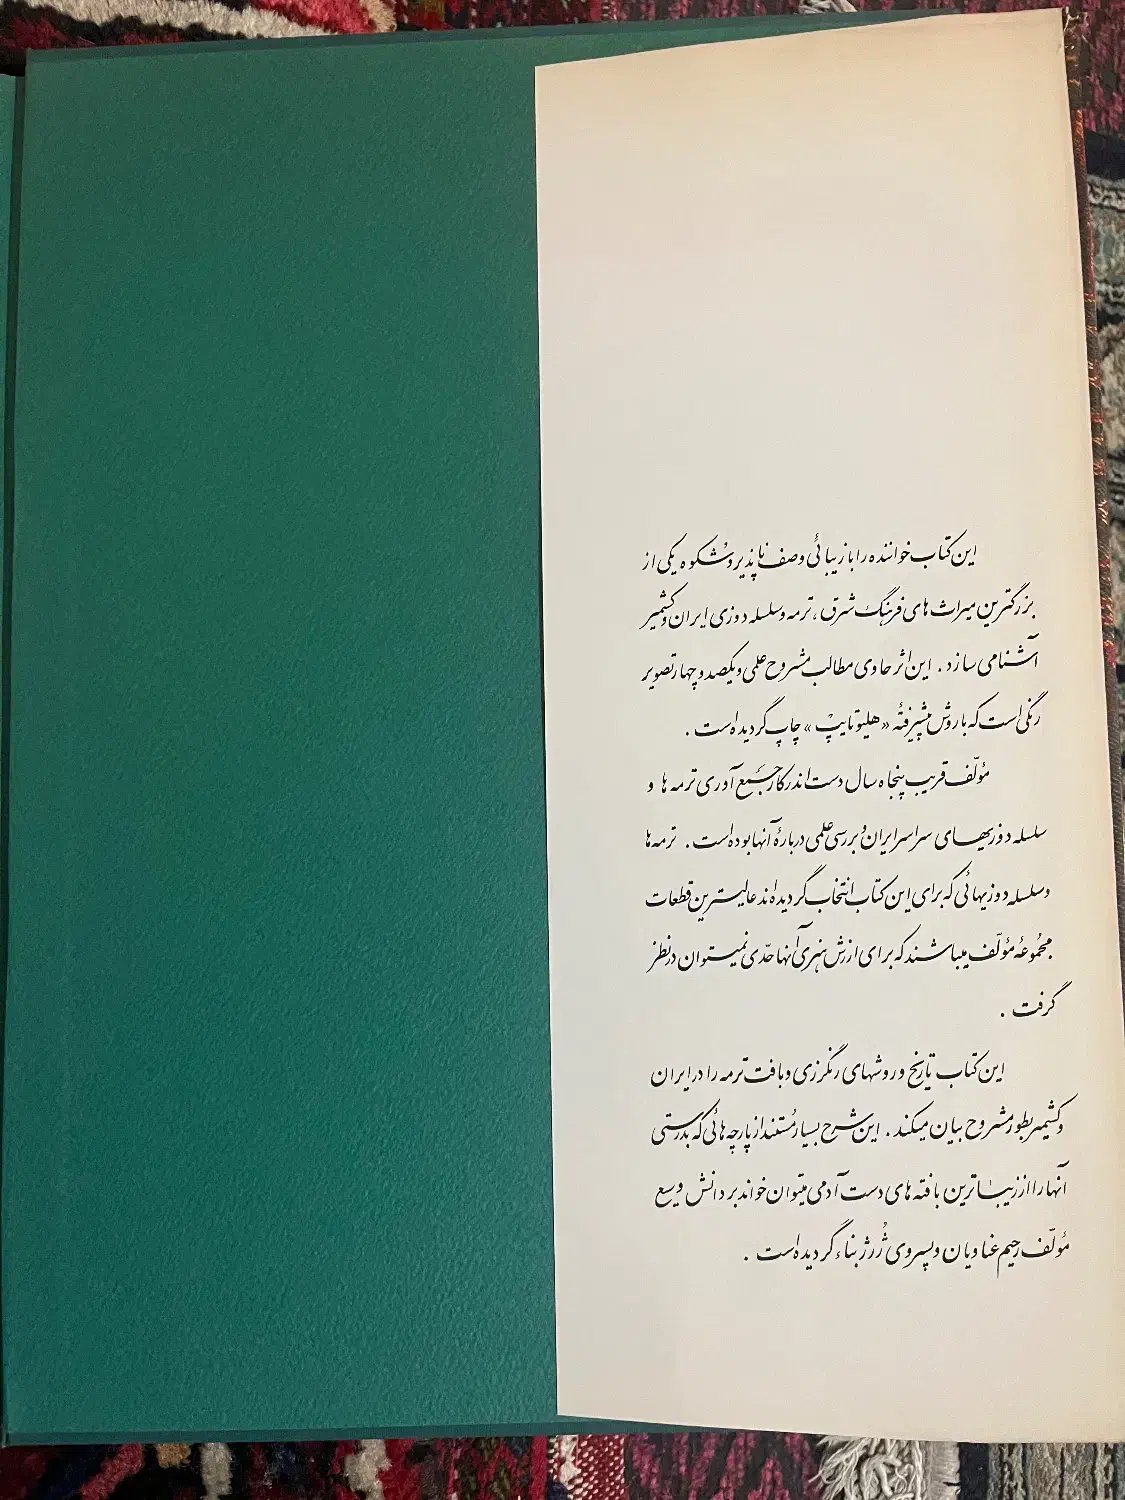 این کتاب خواننده را با زیبائی وصف ناپذیر و شکوه یکی از
بزرگترین میراث های فرهنگ شرق، ترمه و سلسله دوزی ایران و کشمیر
آشنا می سازد. این اثر حاوی مطالب مشروح علمی و یکصد و چهار تصویر
رنگی است که با روش پیشرفتهٔ «هلیوتایپ» چاپ گردیده است.
مؤلّف قریب پنجاه سال دست اندرکار جمع آوری ترمه ها و
سلسله دوزیهای سراسر ایران و بررسی علمی دربارهٔ آنها بوده است. ترمه ها
و سلسله دوزیهائی که برای این کتاب انتخاب گردیده اند عالیترین قطعات
مجموعهٔ مؤلّف میباشند که برای ارزش هنری آنها حدّی نمیتوان در نظر
گرفت.
این کتاب تاریخ و روشهای رنگرزی و بافت ترمه را در ایران
و کشمیر بطور مشروح بیان میکند. این شرح بسیار مُستند از پارچه هائی که بدرستی
آنها را از زیباترین بافته های دست آدمی میتوان خواند بر دانش وسیع
مؤلّف رحیم عناویان و پسر وی ژُرژ بناء گردیده است.